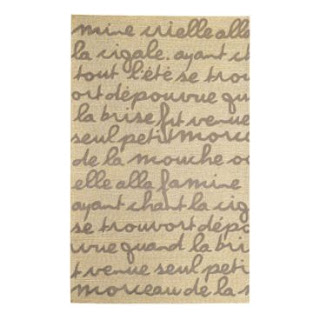 mine crielle alla
la cigale, ayant ch
tout l'été se trouv
ort dépouvue qu
la brise fut venue
seul petit morceau
de la mouche oo
elle alla famine
ayant chant la cig
se trouvort dépo
vue quand la bri
t venue seul peti
morceau de la s